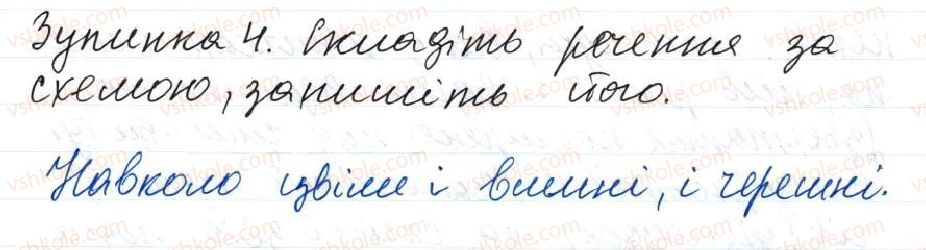 Зупинка 4. Складіть речення за
схемою, запишіть його.
Навколо цвіли і вишні, і черешні.